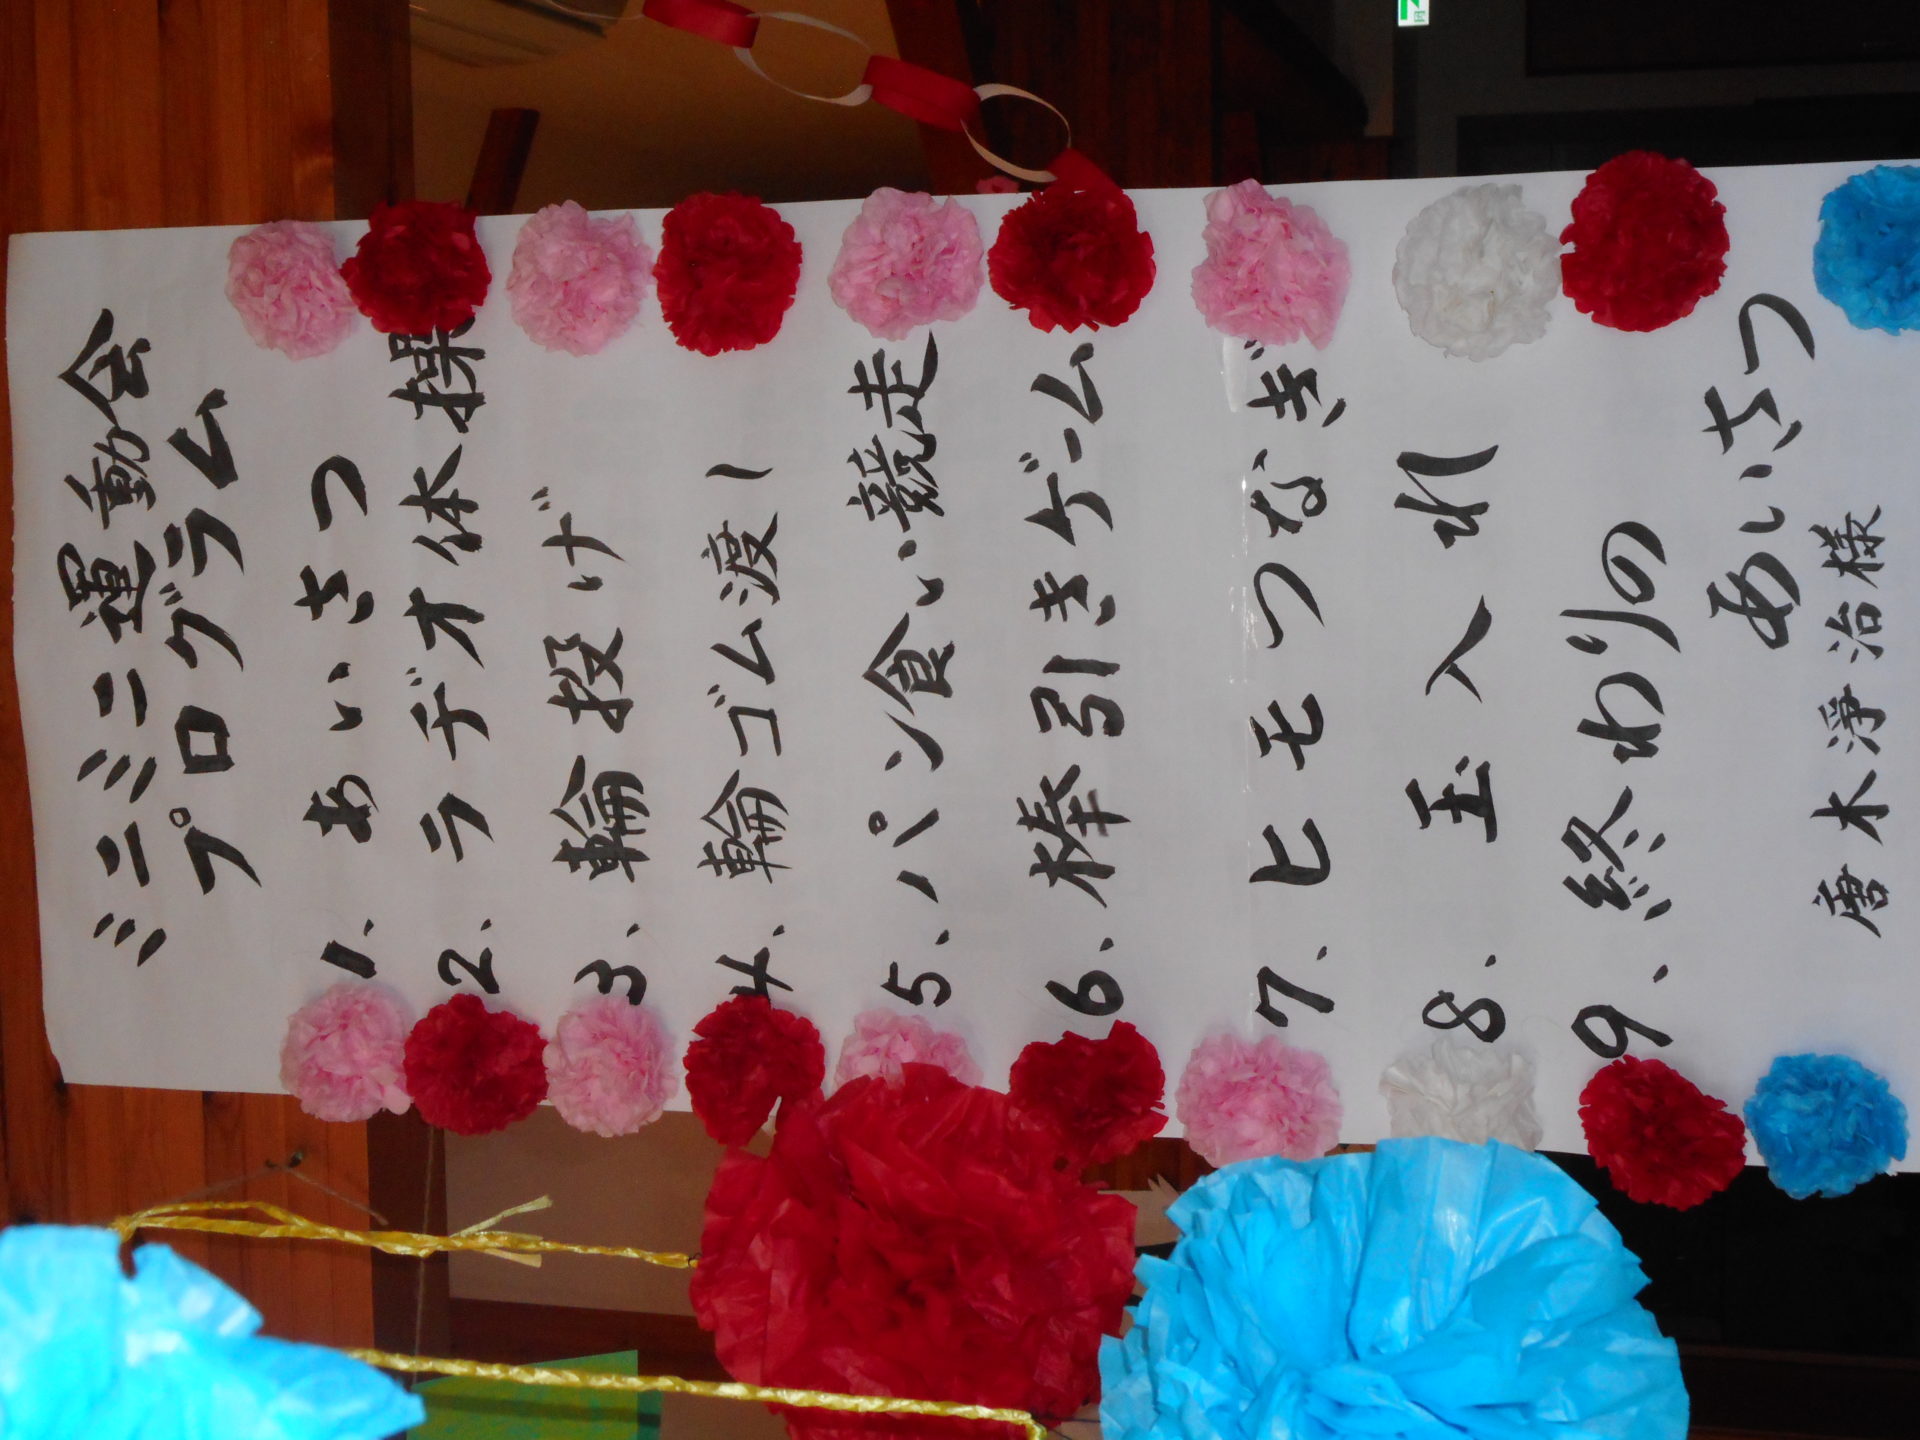 ミニミニ運動会
プログラム
1、あいさつ
2、ラヂオ体操
3、輪投げ
4、輪ゴム渡し
5、パン食い競走
6、棒引きゲーム
7、ヒモつなぎ
8、玉入れ
9、終わりの
あいさつ
唐木浄治様